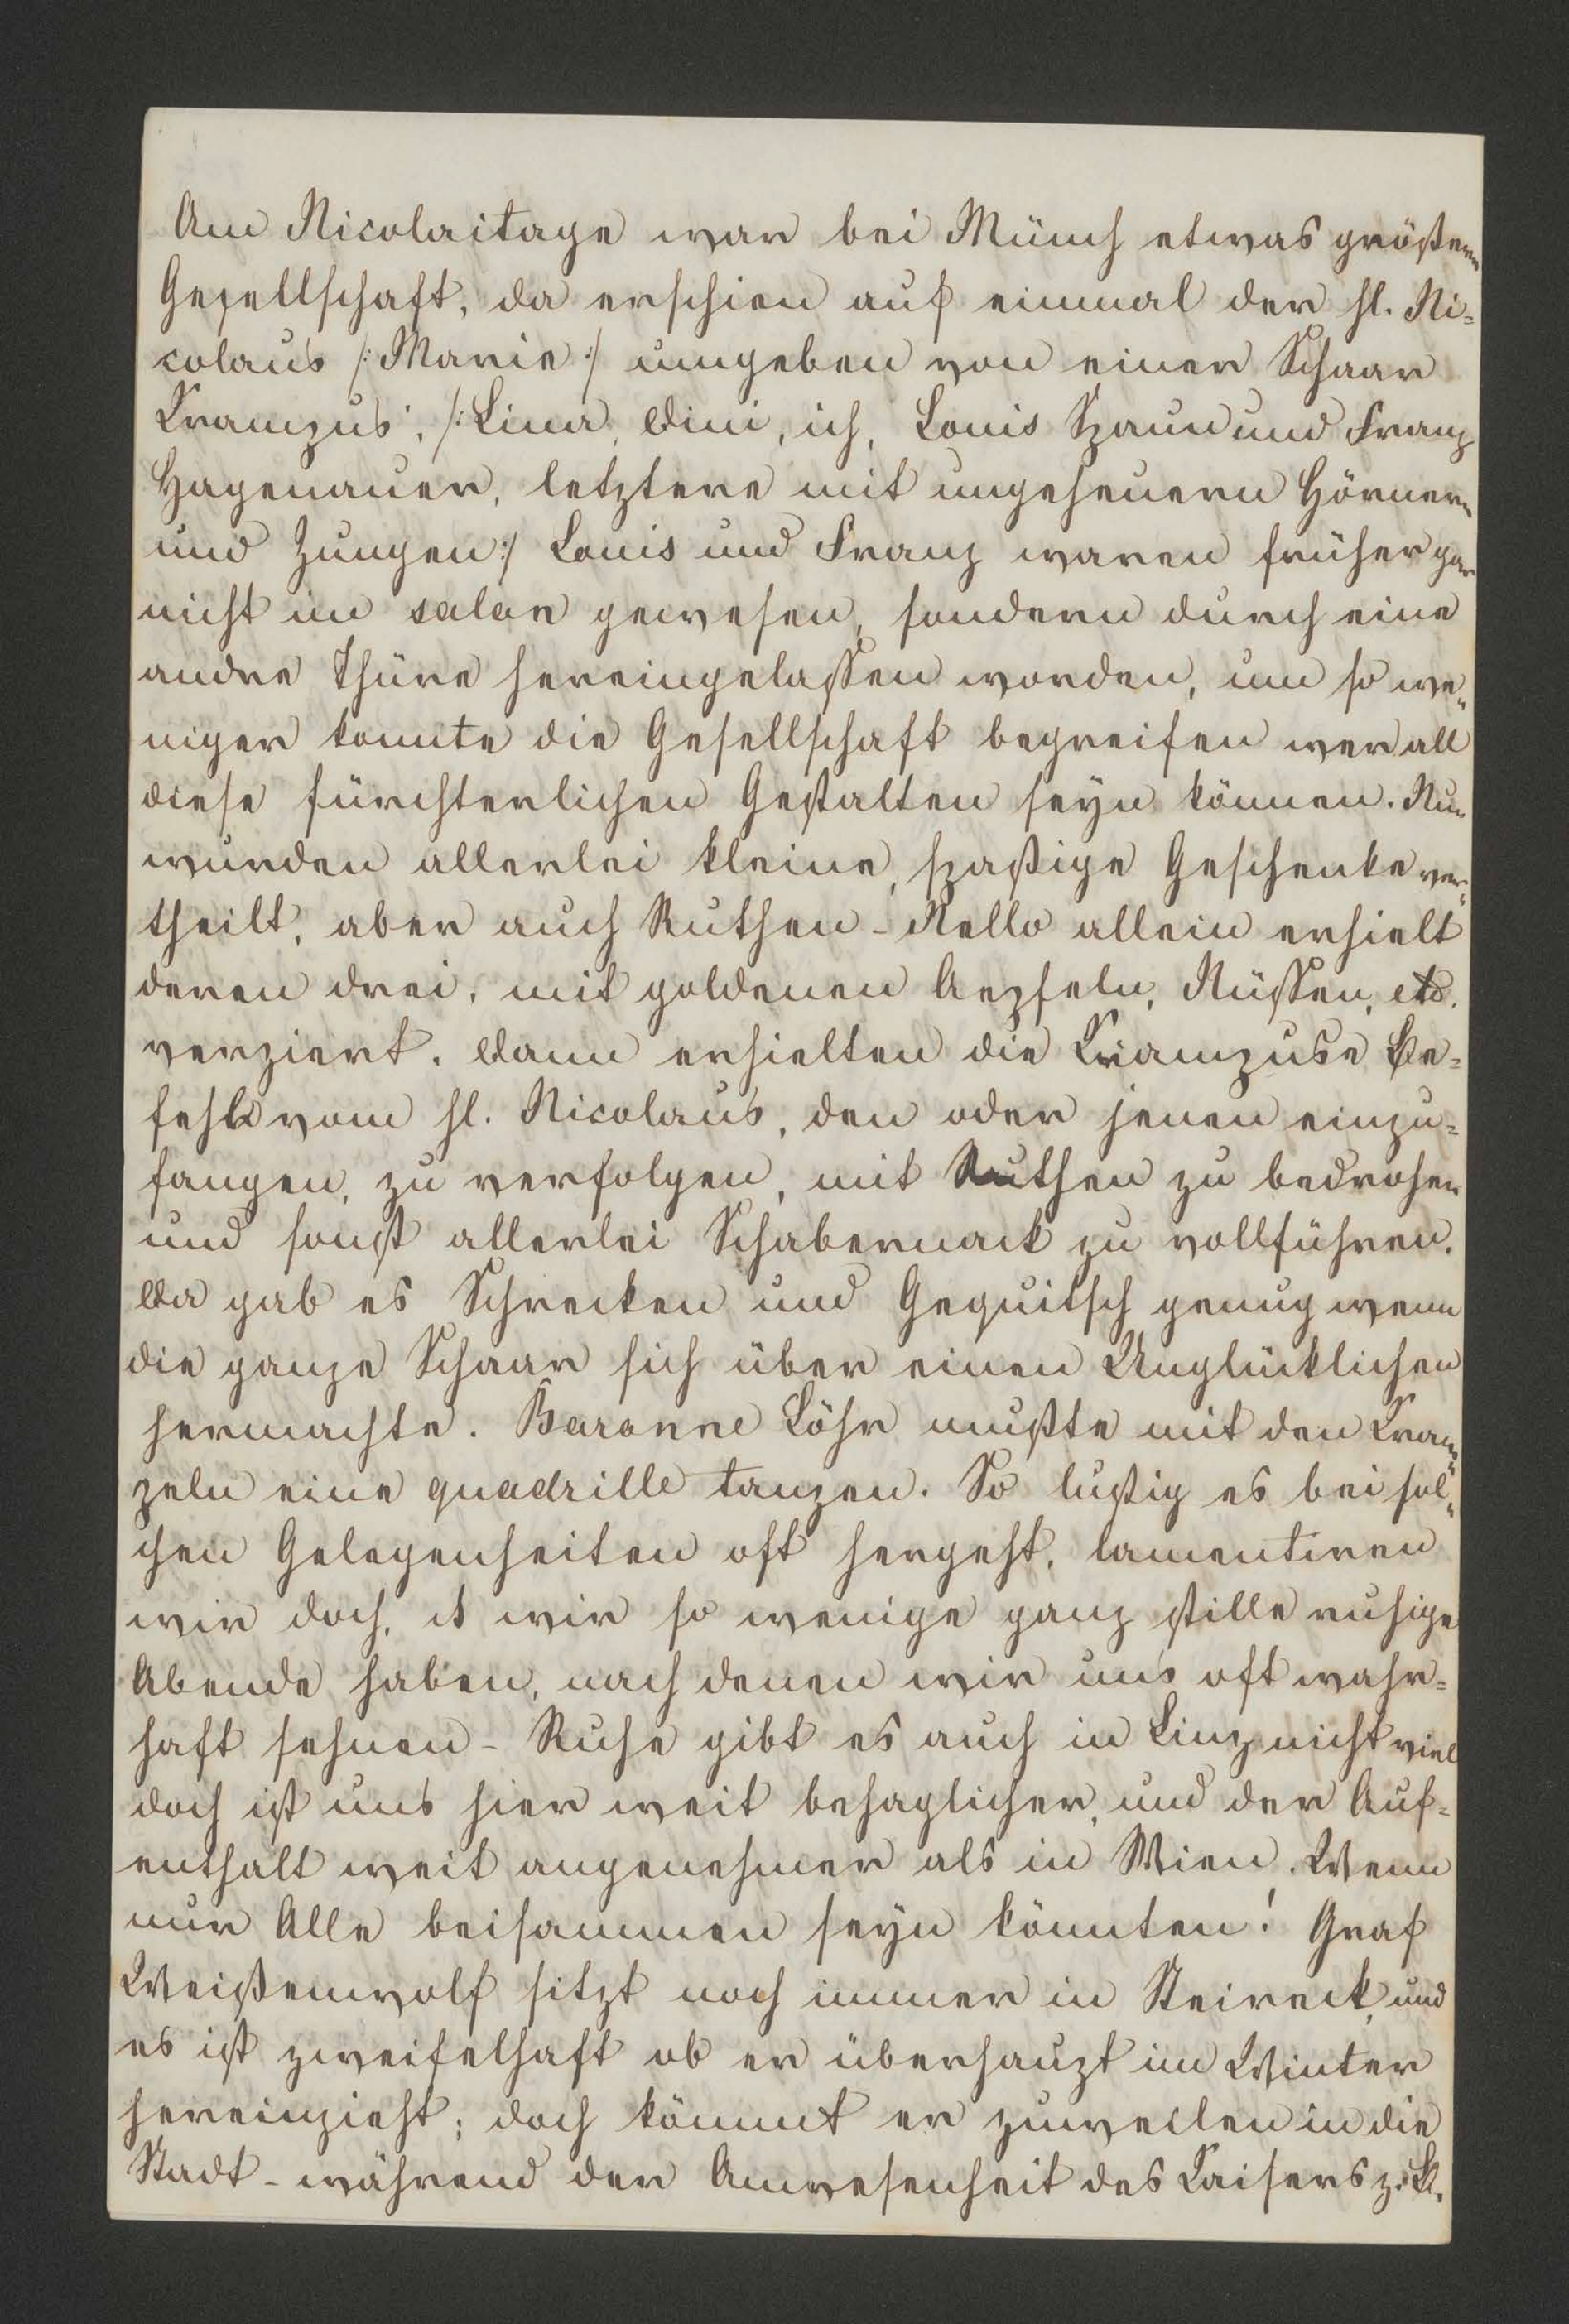 Am Nicolaitage war bei Münch etwas größere
Gesellschaft, da erschien auf einmal der hl. Ni=
colaus /: Marie :/ umgeben von einer Schaar
Krampus', /: Lina, Dini, ich, Louis Spaun und Franz
Hagenauer, letztere mit ungeheuern Hörnern
und Zungen :/ Louis und Franz waren früher gar
nicht im salon gewesen, sondern durch eine
andre Thüre hereingelassen worden, um so we„
niger konnte die Gesellschaft begreifen wer all
diese fürchterlichen Gestalten seyn können. Nun
wurden allerlei kleine, spaßige Geschenke ver„
theilt, aber auch Ruthen - Nello allein erhielt
deren drei, mit goldenen Aepfeln, Nüssen, etc.
verziert. Dann erhielten die Krampuse Be=
fehl vom hl. Nicolaus, den oder jenen einzu=
fangen, zu verfolgen, mit Ruthen zu bedrohen
und sonst allerlei Schabernack zu vollführen.
Da gab es Schrecken und Gequitsch genug wenn
die ganze Schaar sich über einen Unglücklichen
hermachte. Baronne Löhr mußte mit den Kram„
peln eine quadrille tanzen. So lustig es bei sol„
chen Gelegenheiten oft hergeht, lamentiren
wir doch, wir so wenige ganz stille ruhige
Abende haben, nach denen wir uns oft wahr=
haft sehnen - Ruhe gibt es auch in Linz nicht viel
doch ist uns hier weit behaglicher, und der Auf=
enthalt weit angenehmer als in Wien. Wenn
nur Alle beisammen seyn könnten! Graf
Weißenwolf sitzt noch immer in Steireck, und
es ist zweifelhaft ob er überhaupt im Winter
hereinzieht; doch kömmt er zuweilen in die
Stadt - während der Anwesenheit des Kaisers z. B.